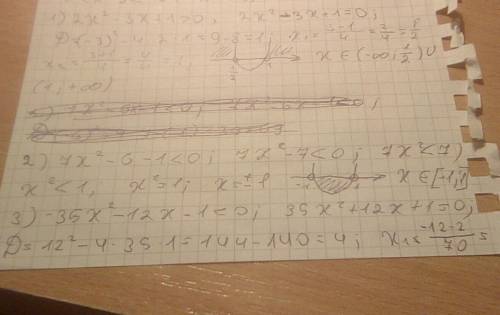 1) 2x² - 3x + 1 > 0; 2x² - 3x + 1 = 0;
D = (-3)² - 4·2·1 = 9 - 8 = 1; x₁ = (3-1)/4 = 2/4 = 1/2
x₂ = (3+1)/4 = 4/4 = 1; 1/2 1 x ∈ (-∞; 1/2) ∪
(1; +∞)
2) 7x² - 6 - 1 < 0; 7x² - 7 < 0; 7x² < 7;
x² < 1; x² = 1; x = ±1 -1 1 x ∈ [-1; 1]
3) -35x² - 12x - 1 < 0; 35x² + 12x + 1 = 0;
D = 12² - 4·35·1 = 144 - 140 = 4; x₁ = (-12-2)/70 =